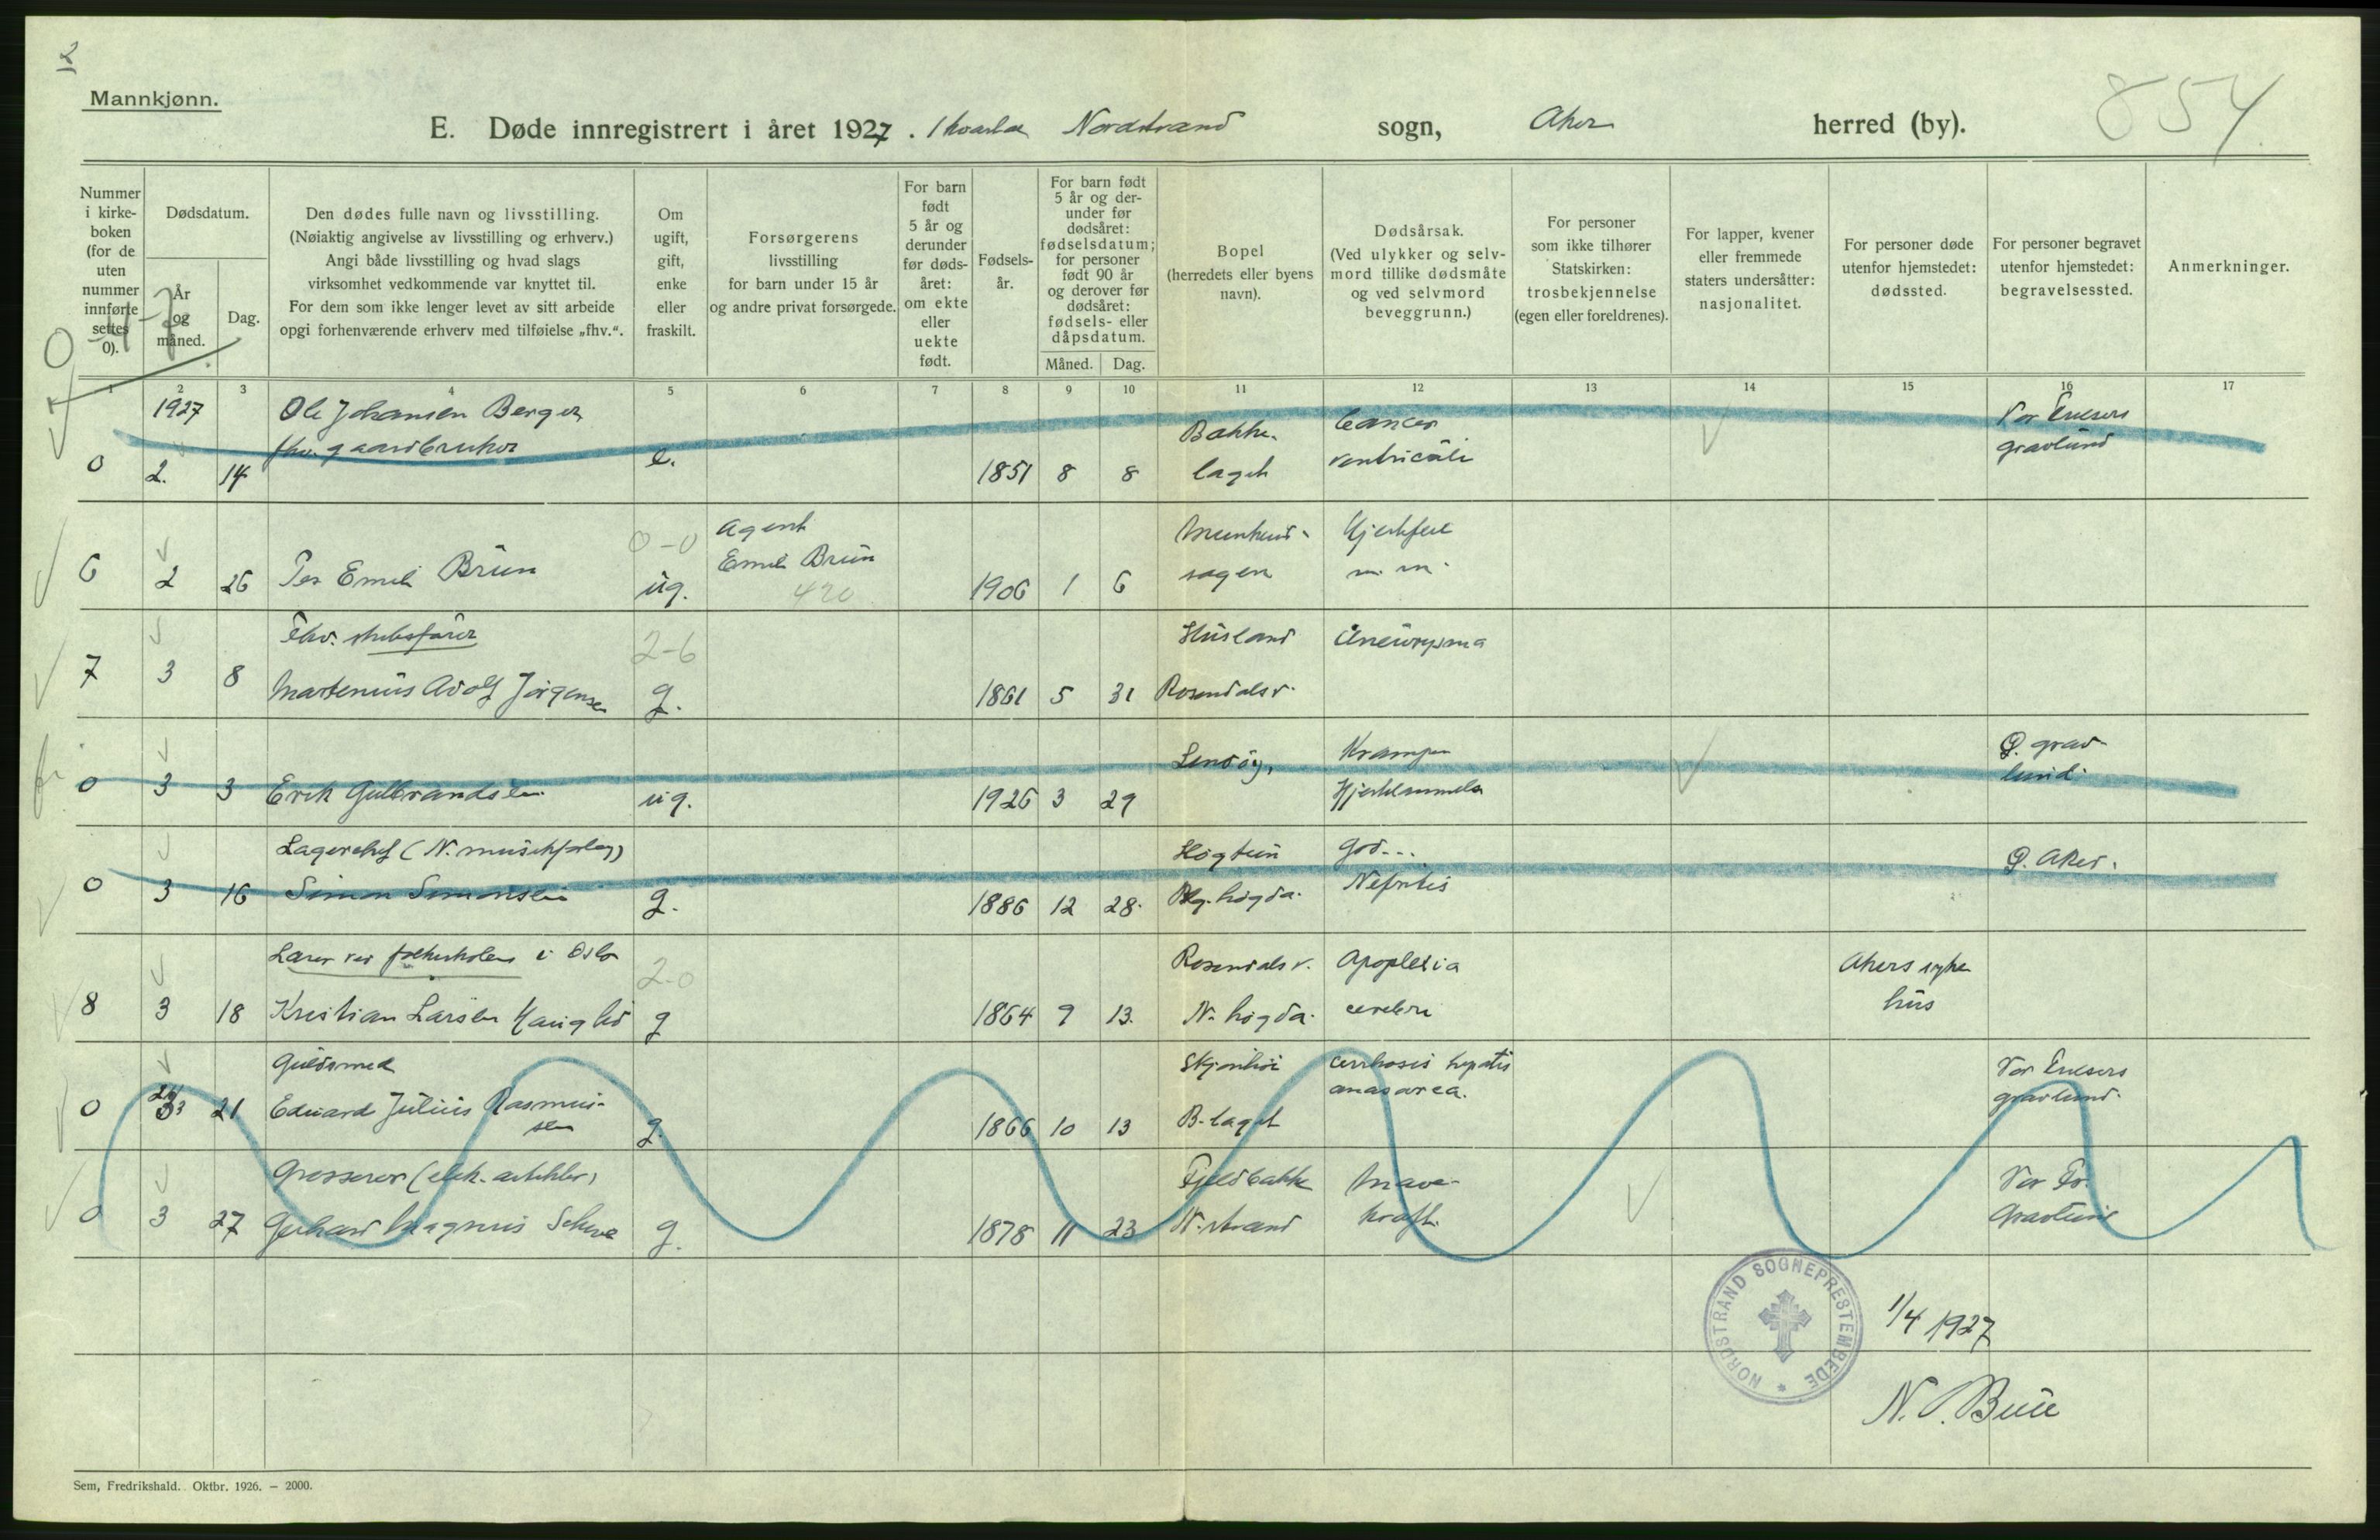 2
Mannkjønn.
E. Døde innregistrert i året 1927. 1 kvartal Nordstrand sogn, Aker herred (by).
854
Nummer i kirkeboken (for de uten nummer innførte settes 0).
Dødsdatum.
År og måned.
Dag.
Den dødes fulle navn og livsstilling.
(Nøiaktig angivelse av livsstilling og erhverv.)
Angi både livsstilling og hvad slags
virksomhet vedkommende var knyttet til.
For dem som ikke lenger levet av sitt arbeide
opgi forhenværende erhverv med tilføielse „fhv.“.
Om ugift, gift, enke eller fraskilt.
Forsørgerens
livsstilling
for barn under 15 år
og andre privat forsørgede.
For barn født 5 år og derunder før dødsåret: om ekte eller uekte født.
Fødselsår.
For barn født 5 år og derunder før dødsåret: fødselsdatum; for personer født 90 år og derover før dødsåret: fødsels- eller dåpsdatum.
Måned.
Dag.
Bopel
(herredets eller byens
navn).
Dødsårsak.
(Ved ulykker og selv-
mord tillike dødsmåte
og ved selvmord
beveggrunn.)
For personer
som ikke tilhører
Statskirken:
trosbekjennelse
(egen eller foreldrenes).
For lapper, kvener
eller fremmede
staters undersåtter:
nasjonalitet.
For personer døde
utenfor hjemstedet:
dødssted.
For personer begravet
utenfor hjemstedet:
begravelsessted.
Anmerkninger.
1 2 3 4 5 6 7 8 9 10 11 12 13 14 15 16 17
1927 Ole Johansen Berger Bakke- Cancer Vor Frelsers
fhv. gaardbruker gravlund
0 2. 14 e. 1851 8 8 laget ventriculi
Agent Hjertefeil
0-0 Emil Brun
6 2 26 Per Emil Brun ug. 420 1906 1 6 m. m.
Fhv. skibsfører 2-6 Husland Aneurysma
7 3 8 Martenius Adolf Jørgensen g. 1861 5 31 Rosendalsv.
Krampe Ø. grav-
lund.
0 3 3 Erik Gulbrandsen ug. 1926 3 29
Lagerchef (N. musikforlag) Høgtun Ø. Aker.
0 3 16 Simon Simonsen g. 1886 12 28. høgda. Nefritis
Lærer ved folkeskolen i Oslo 2-0 Rosendalsv. Apoplexia Akers syke
hus
8 3 18 Kristian Larsen Hauglid g 1864 9 13. N. høgda. cerebri
Guldsmed Cirrhosis hepatis Vor Frelsers
anasarca. gravlund.
0 3 21 Edvard Julius Rasmus-
sen g. 1866 10 13 B-laget
Grosserer (elek. artikler) Fjeldbakke Mave- Vor Fr.
Gravlund
0 3 27 Gerhard Magnus g. 1878 11 23 N. strand kræft.
NORDSTRAND SOGNEPRESTEMBEDE
1/4 1927
Sem, Fredrikshald. Oktbr. 1926. — 2000.